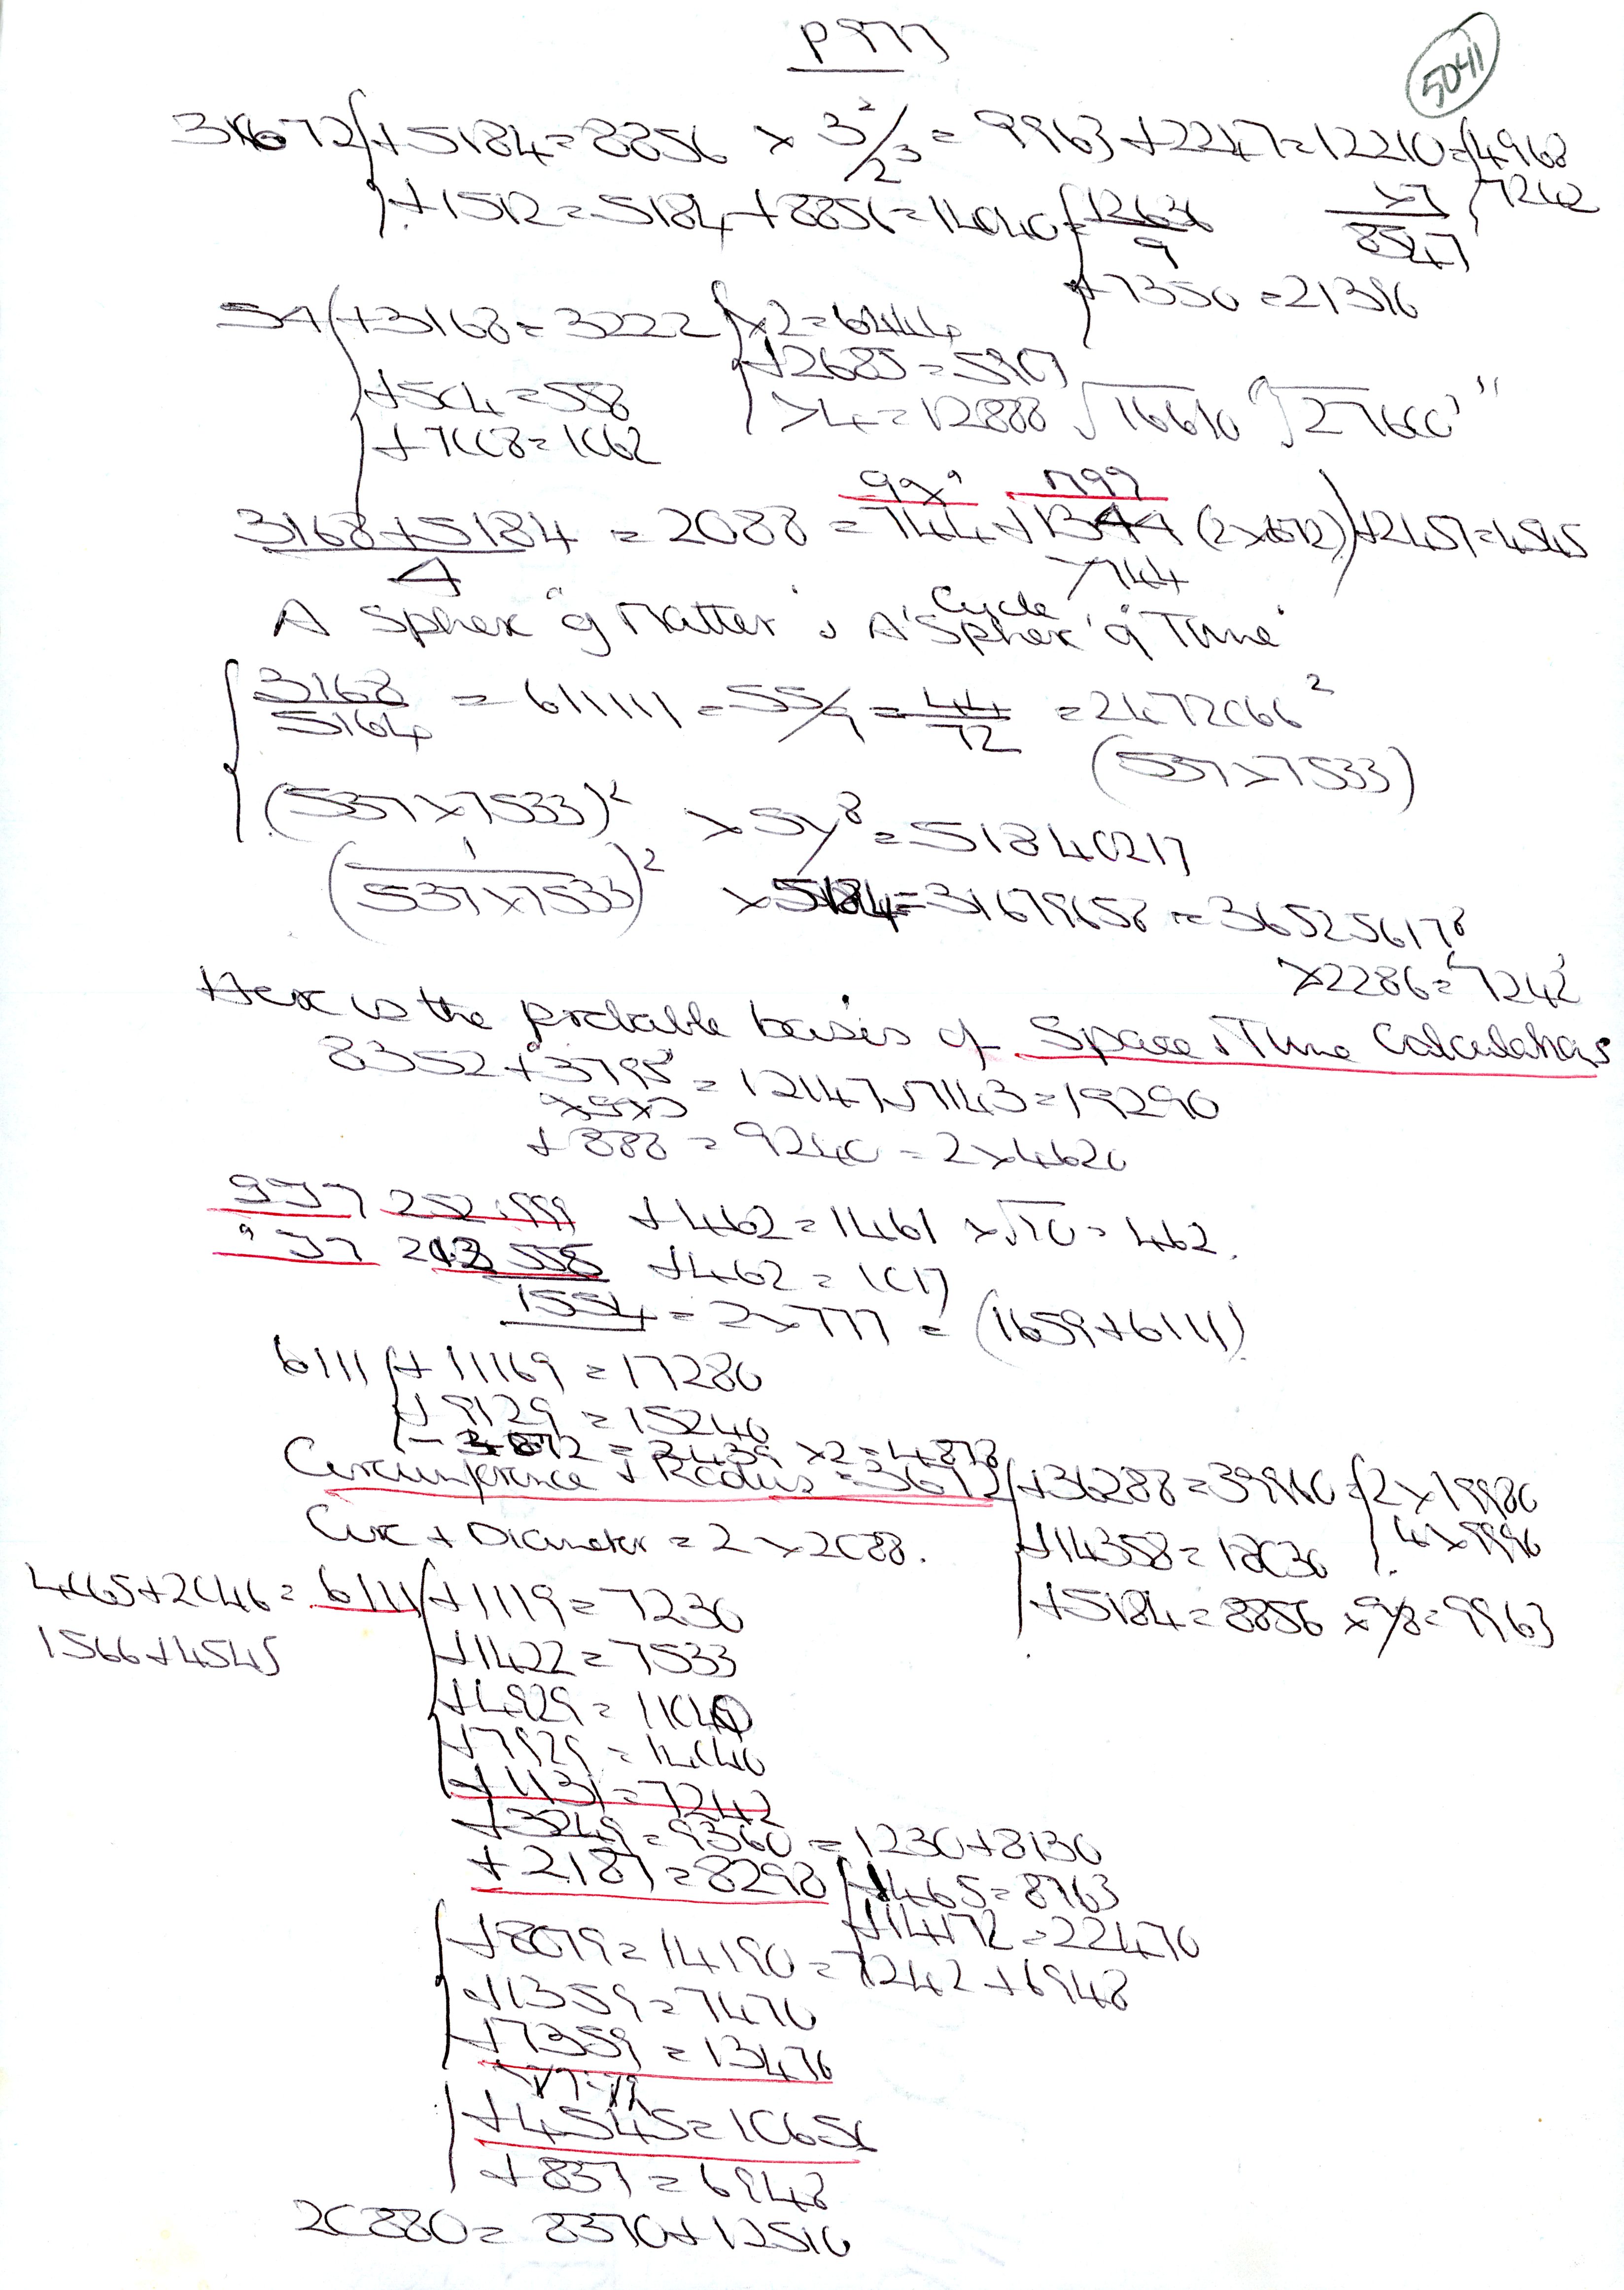 P977
5041
3672 + 5184 = 8856 × 3²/2³ = 9963 + 2247 = 12210 = 4968
+ 1512 = 5184 + 8856 = 14040 = 12636/9 ×7 7242
8547
+ 7356 = 21396
54 + 3168 = 3222 × 2 = 6444
+ 2685 = 5907
+ 504 = 558
× 4 = 12888 √16610 "√27600"
+ 1008 = 1062
9×9 1799
3168 + 5184 = 2088 = 744 + 1344 (2×672) + 2457 = 4545
4 ×744
A Sphere "of Matter" & A "Sphere "of Time"
Cycle
3168/5184 = 611111 = 55/9 = 44/72 = 2472066²
(537 × 7533)
(537 × 7533)² × 5/8 = 51840217
(1/537 × 7533)² × 5184 = 31679658 = 365256178
× 2286 = '7242'
Here is the probable basis of Space & Time Calculations
8352 + 3795 = 12147 + 7143 = 19290
+ 888 = 9240 = 2 × 4620
252 . 999 + 462 = 1461 × √10 = 462.
555 + 462 = 1017
1554 = 2 × 777 = (1659 + 6111)
6111 + 11169 = 17280
+ 9129 = 15240
- 3672 = 2439 × 2 = 4878
Circumference + Radius = 3672 + 36288 = 39960 = 2 × 19980
4 × 9990
Circ + Diameter = 2 × 2088.
+ 14358 = 18030
+ 5184 = 8856 × 9/8 = 9963
4065 + 2046 = 6111 + 1119 = 7230
1566 + 4545
+ 1422 = 7533
+ 4929 = 11040
+ 7929 = 14040
+ 1131 = 7242
+ 3249 = 9360 = 1230 + 8130
+ 2187 = 8298 + 465 = 8763
+ 14172 = 22470
+ 8079 = 14190 = 7242 + 6948
+ 1359 = 7470
+ 7359 = 13470
+ 4545 = 10656
+ 837 = 6948
20880 = 8370 + 12510